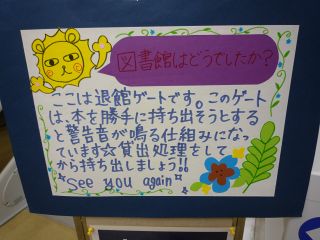 図書館はどうでしたか？
ここは退館ゲートです。このゲート
は、本を勝手に持ち出そうとする
と警告音が鳴る仕組みになっ
ています☆貸出処理をして
から持ち出しましょう!!
☆See you again☆